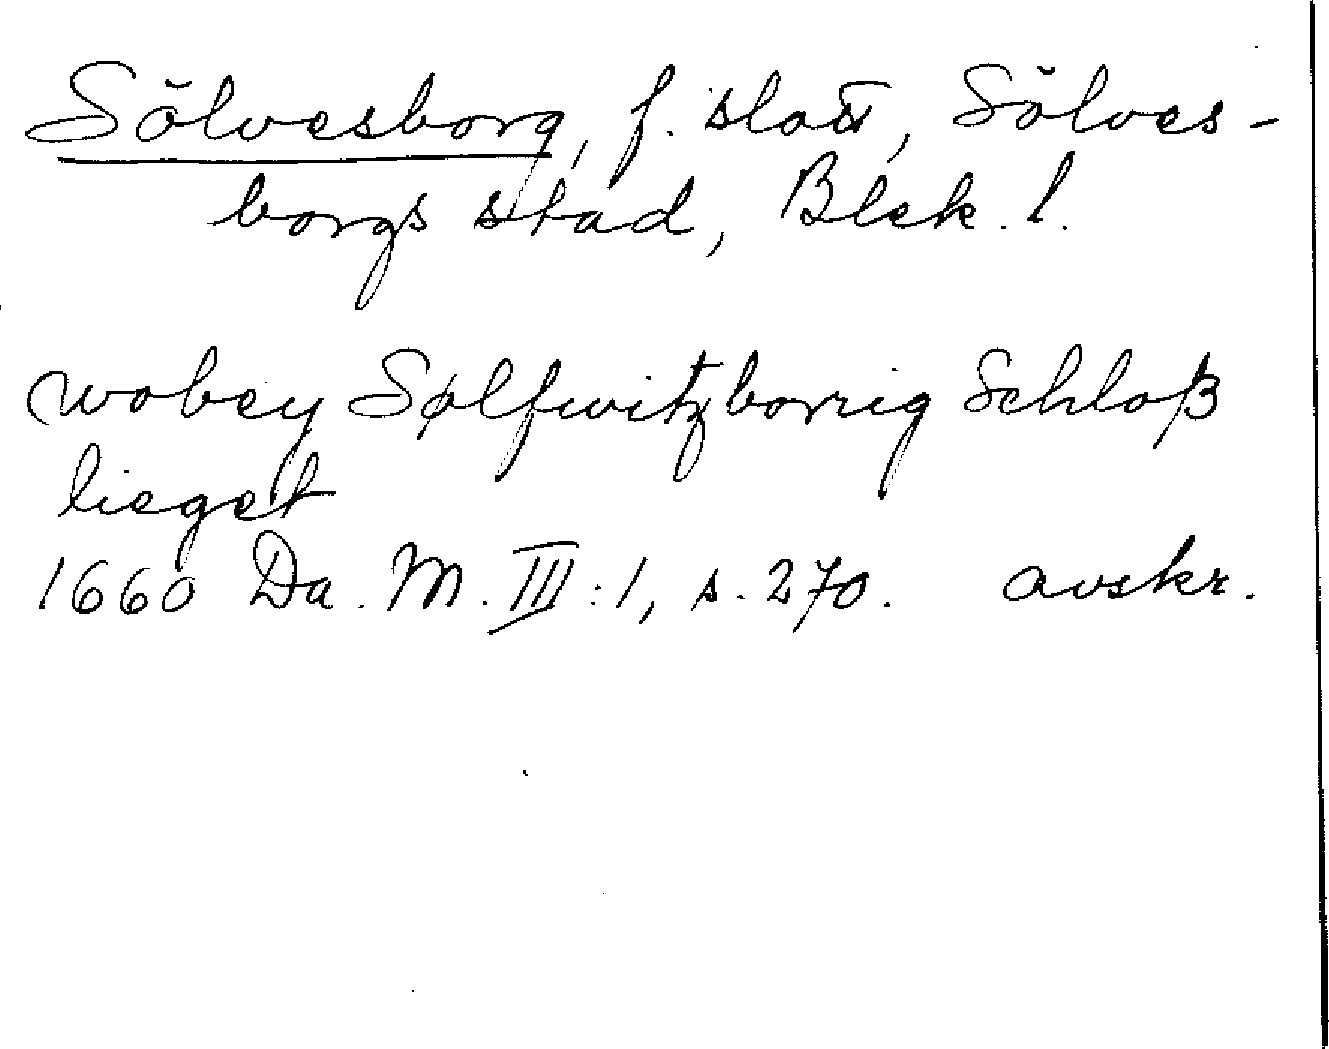 Sölvesborg, f. slott, Sölves-
borgs stad, Blek. l.
wobey Sølfwitzborrig Schloß
lieget
1660 Da. M. III:1, s. 270. avskr.